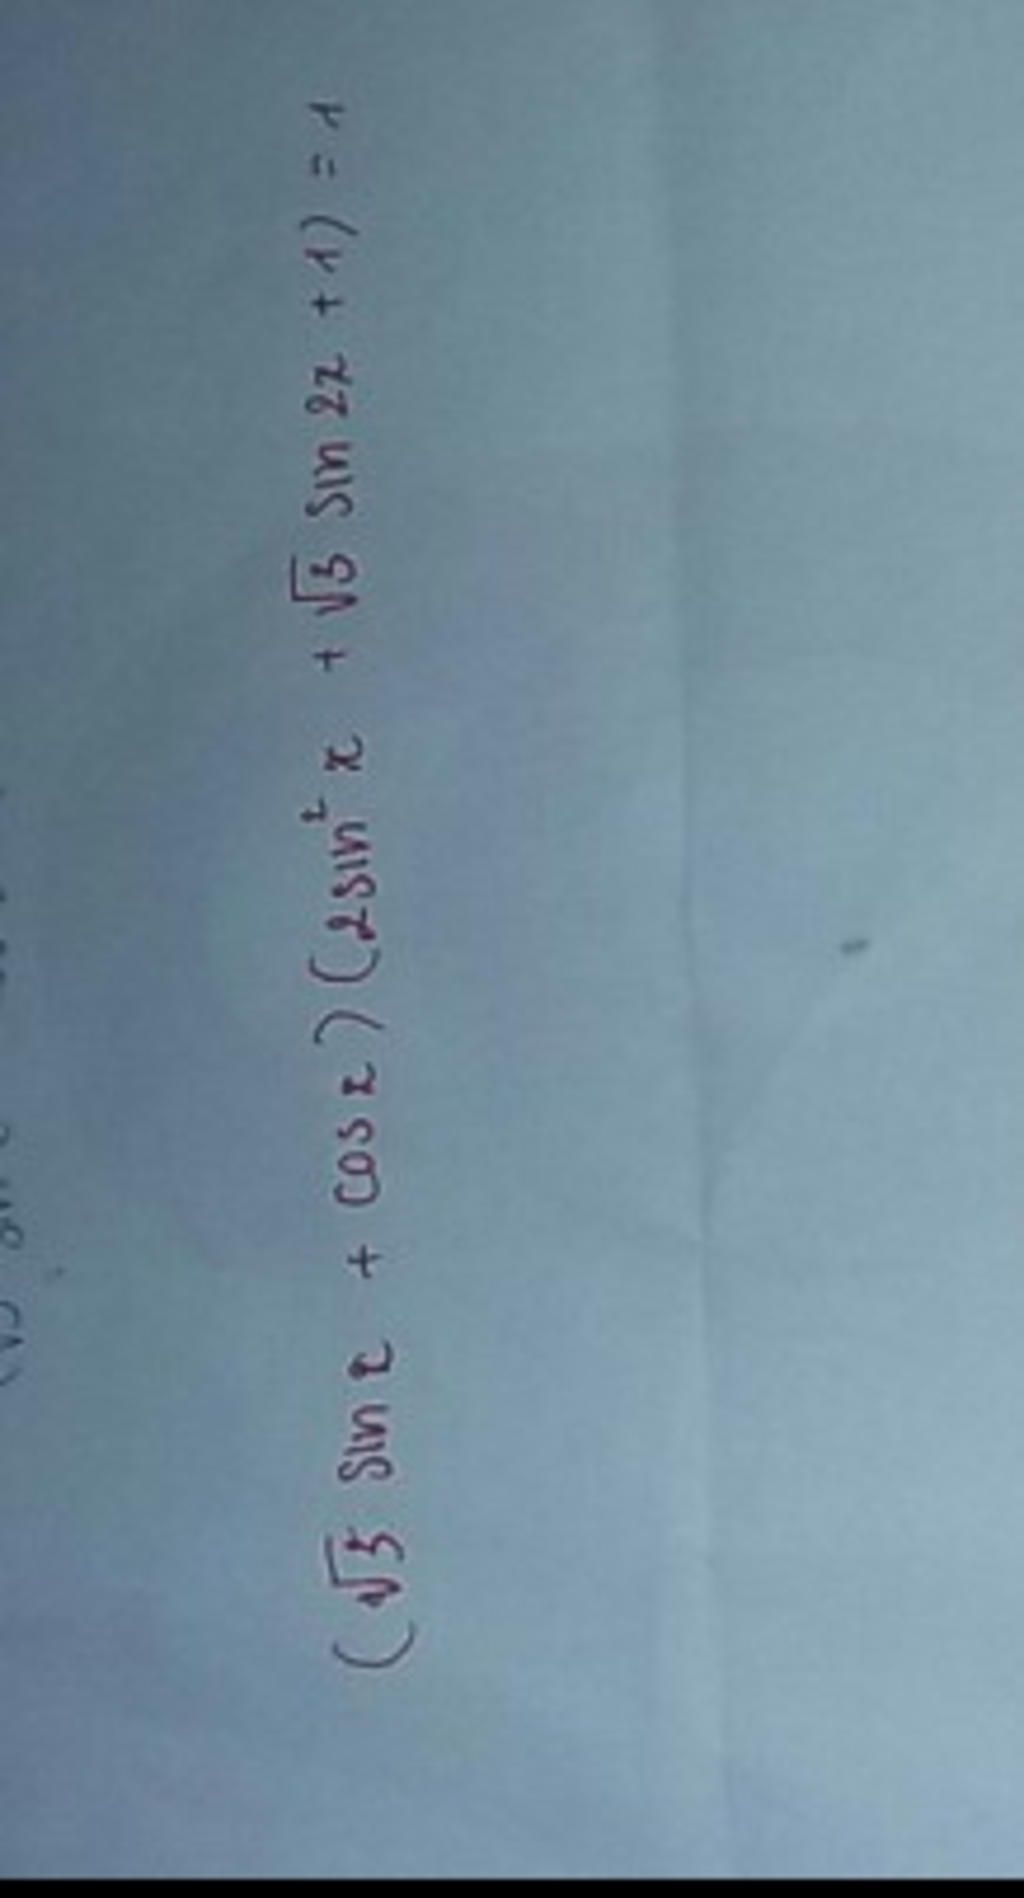 (√3 sin x + cos x) (2sin² x + √3 sin 2x + 1) = 1